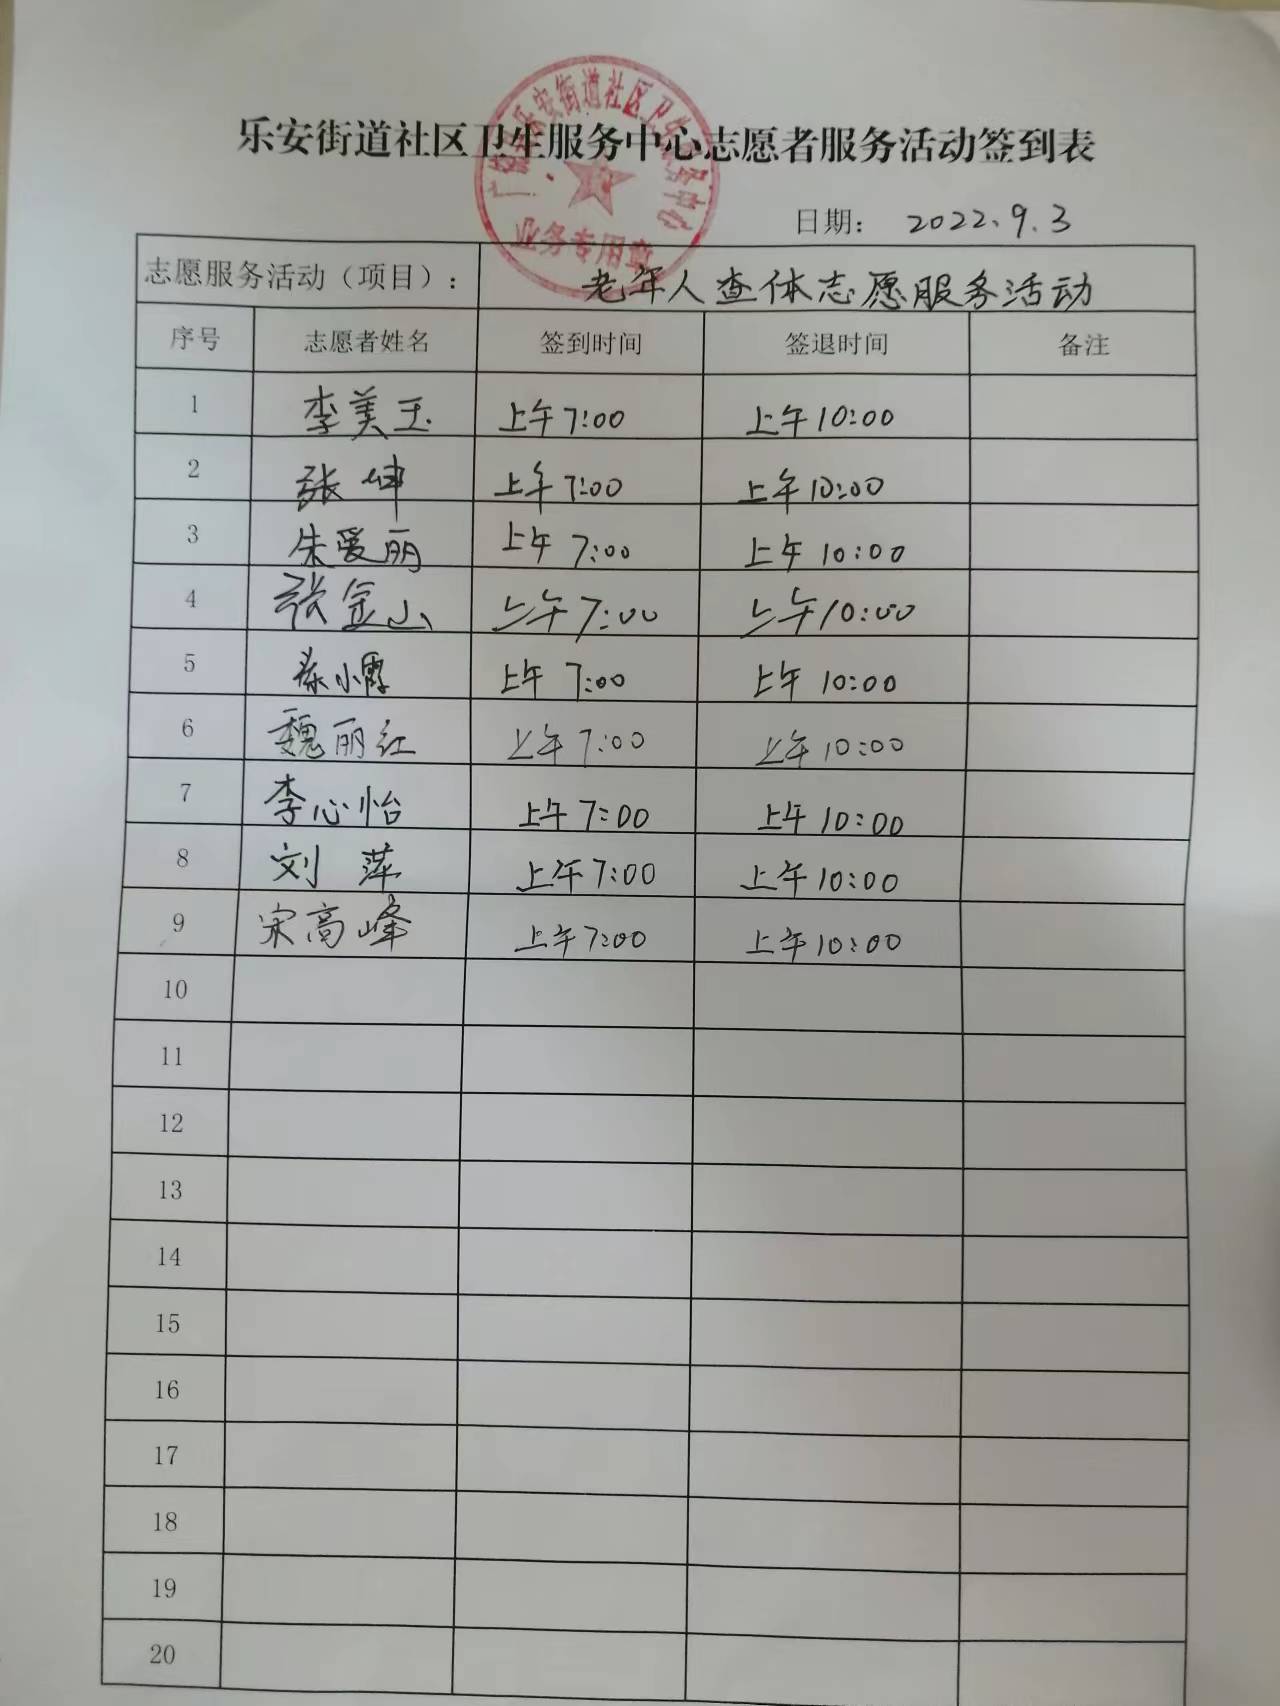 乐安街道社区卫生服务中心志愿者服务活动签到表
业务专用章
日期： 2022.9.3
志愿服务活动（项目）： 老年人查体志愿服务活动
序号 志愿者姓名 签到时间 签退时间 备注
1 李美玉 上午7:00 上午10:00
2 张坤 上午7:00 上午10:00
3 朱爱丽 上午7:00 上午10:00
4 张金山 上午7:00 上午10:00
5 小霞 上午7:00 上午10:00
6 魏丽红 上午7:00 上午10:00
7 李心怡 上午7:00 上午10:00
8 刘萍 上午7:00 上午10:00
9 宋高峰 上午7:00 上午10:00
10
11
12
13
14
15
16
17
18
19
20